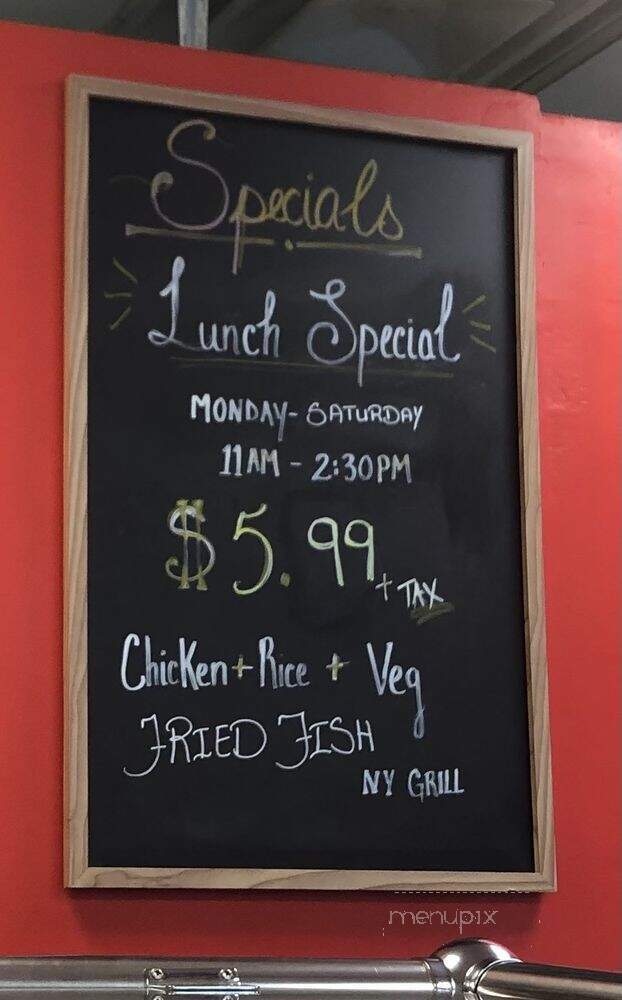 Specials
Lunch Special
MONDAY - SATURDAY
11AM - 2:30PM
$5.99 + TAX
Chicken + Rice + Veg
FRIED FISH
NY GRILL
menupix